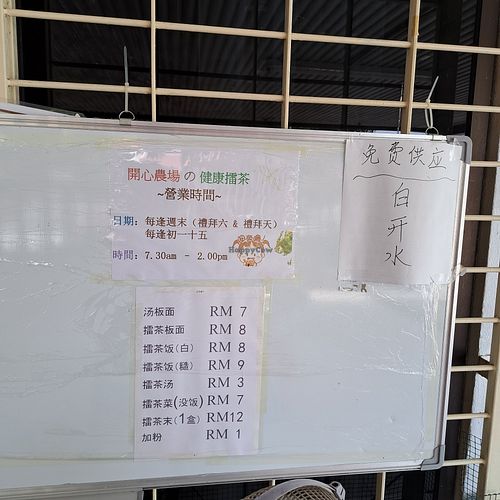 開心農場 の 健康擂茶
~營業時間~
日期: 每逢週末（禮拜六 & 禮拜天）
每逢初一十五
時間: 7.30am - 2.00pm
HappyCow
免费供应
白
开
水
汤板面 RM 7
擂茶板面 RM 8
擂茶饭(白) RM 8
擂茶饭(糙) RM 9
擂茶汤 RM 3
擂茶菜(没饭) RM 7
擂茶末(1盒) RM12
加粉 RM 1